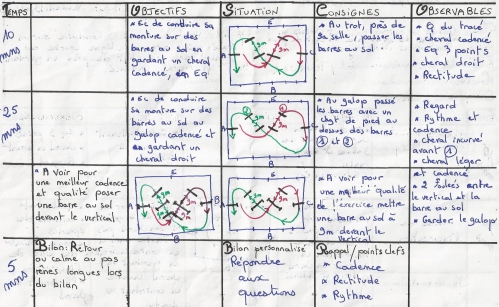 TEMPS
OBJECTIFS
SITUATION
CONSIGNES
OBSERVABLES
10
mns
* Ec de conduire sa
monture sur des
barres au sol en
gardant un cheval
cadencé, en Eq
E
9m
9m
A
C
B
* Au trot, près de
sa selle, passer les
barres au sol.
* Q du tracé
* cheval cadencé
* Eq 3 points
* cheval droit
* Rectitude
25
mns
* Ec de conduire
sa monture sur des
barres au sol au
galop cadencé et
en gardant un
cheval droit
E
A
C
B
* Au galop passé
les barres avec un
chgt de pied au
dessus des barres
① et ②
* Regard
* Rythme et
cadence
* cheval incurvé
avant ①
* cheval léger
et cadencé
* 2 foulées entre
le vertical et la
barre au sol
* Garder le galop
* A voir pour
une meilleur cadence
et qualité poser
une barre au sol
devant le vertical
E
B
E
A
C
B
* A voir pour
une meilleure qualité
de l'exercice mettre
une barre au sol à
9m devant le
vertical
5
mns
Bilan: Retour
au calme au pas
rênes longues lors
du bilan
Bilan personnalisé
Répondre
aux
questions
Rappel/points clefs
* Cadence
* Rectitude
* Rythme